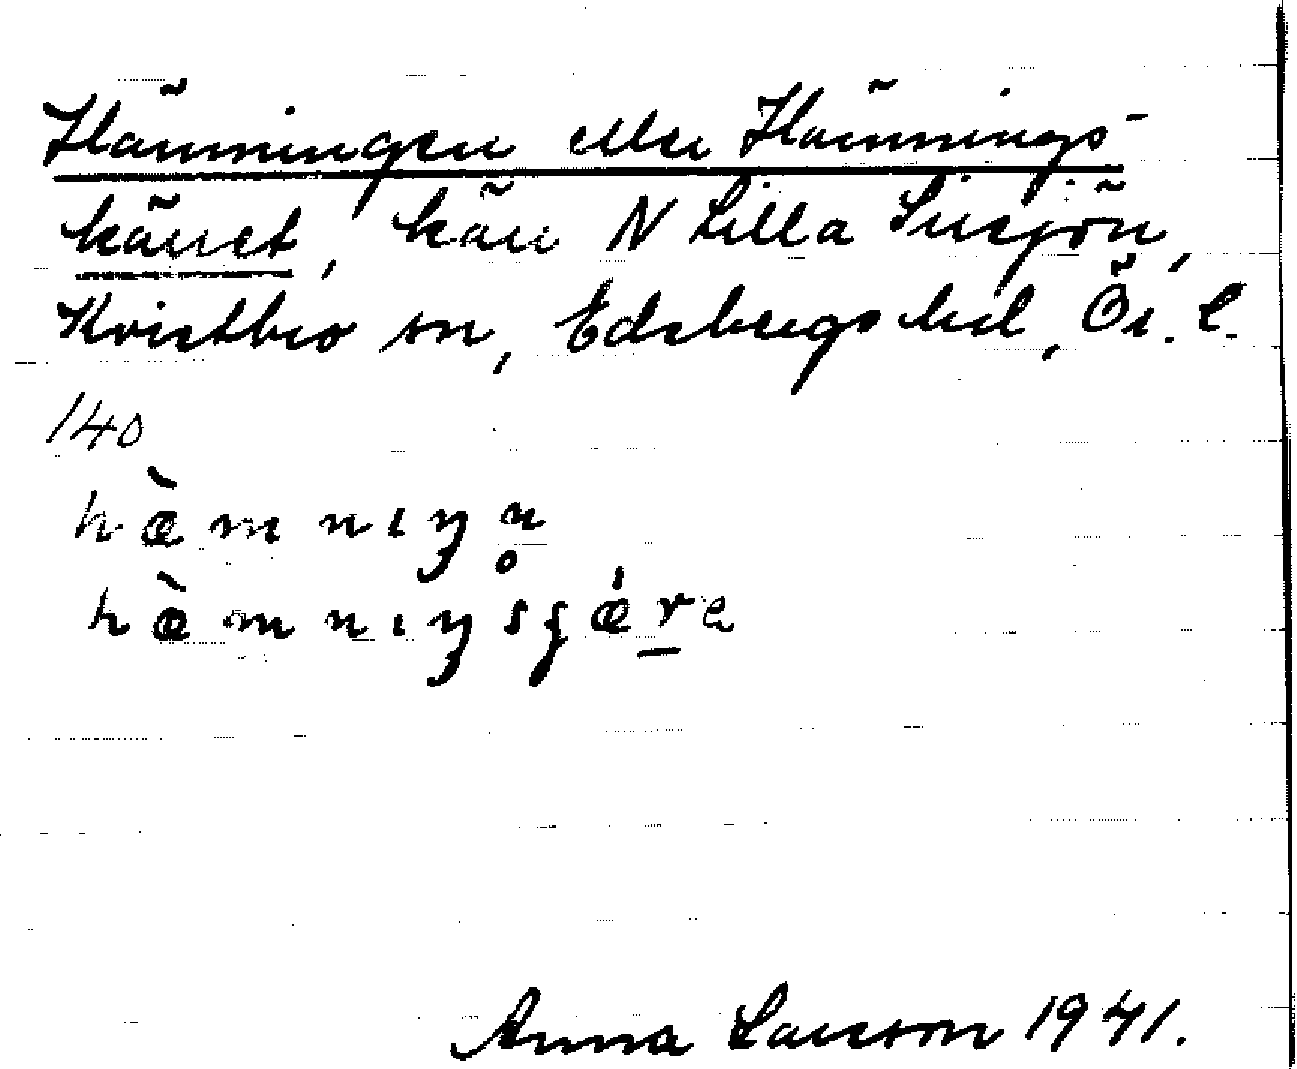 Hämningen eller Hämnings-
kärret, kärr N Lilla Sirsjön,
Kvistbro sn, Edsbergs hd, Ör. l.
140
hæ̀mnıŋn̥
hæ̀mnıŋsʃǽrɐ
Anna Larsson 1941.